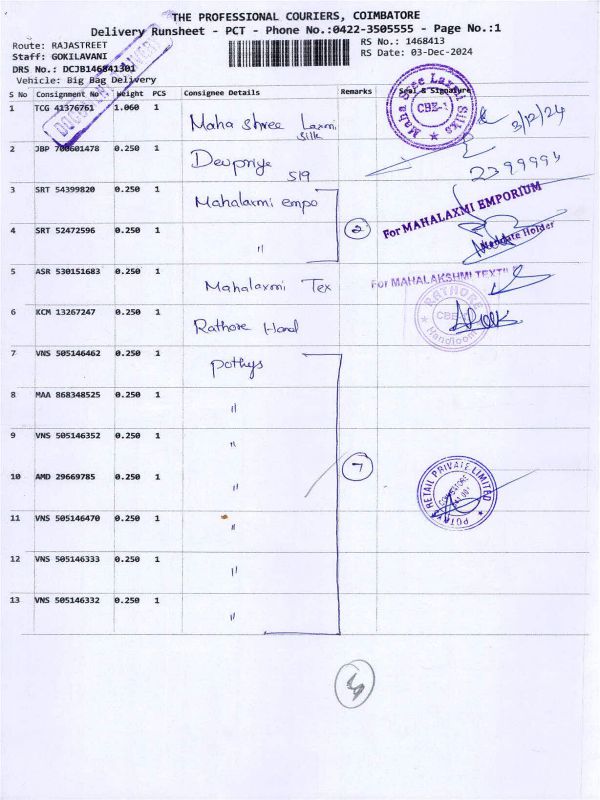 THE PROFESSIONAL COURIERS, COIMBATORE
Delivery Runsheet - PCT - Phone No.:0422-3505555 - Page No.:1
Route: RAJASTREET
Staff: GOKILAVANI
DRS No.: DCJB146841301
Vehicle: Big Bag Delivery
RS No.: 1468413
RS Date: 03-Dec-2024
S No Consignment No Weight PCS Consignee Details Remarks Seal & Signature
1 TCG 41376761 1.060 1 Maha Shree Laxmi Silk
Maha Sree Laxmi Silks CBE-1
3/12/24
2 JBP 700601478 0.250 1 Devpriya 519
2399994
3 SRT 54399820 0.250 1 Mahalaxmi empo
2
For MAHALAXMI EMPORIUM
Mandate Holder
4 SRT 52472596 0.250 1 "
5 ASR 530151683 0.250 1 Mahalaxmi Tex
For MAHALAKSHMI TEXT
6 KCM 13267247 0.250 1 Rathore Hand
RATHORE CBE-1 Handloom
7 VNS 505146462 0.250 1 Pothys
8 MAA 868348525 0.250 1 "
9 VNS 505146352 0.250 1 "
7
10 AMD 29669785 0.250 1 "
RETAIL PRIVATE LIMITED
11 VNS 505146470 0.250 1 "
12 VNS 505146333 0.250 1 "
13 VNS 505146332 0.250 1 "